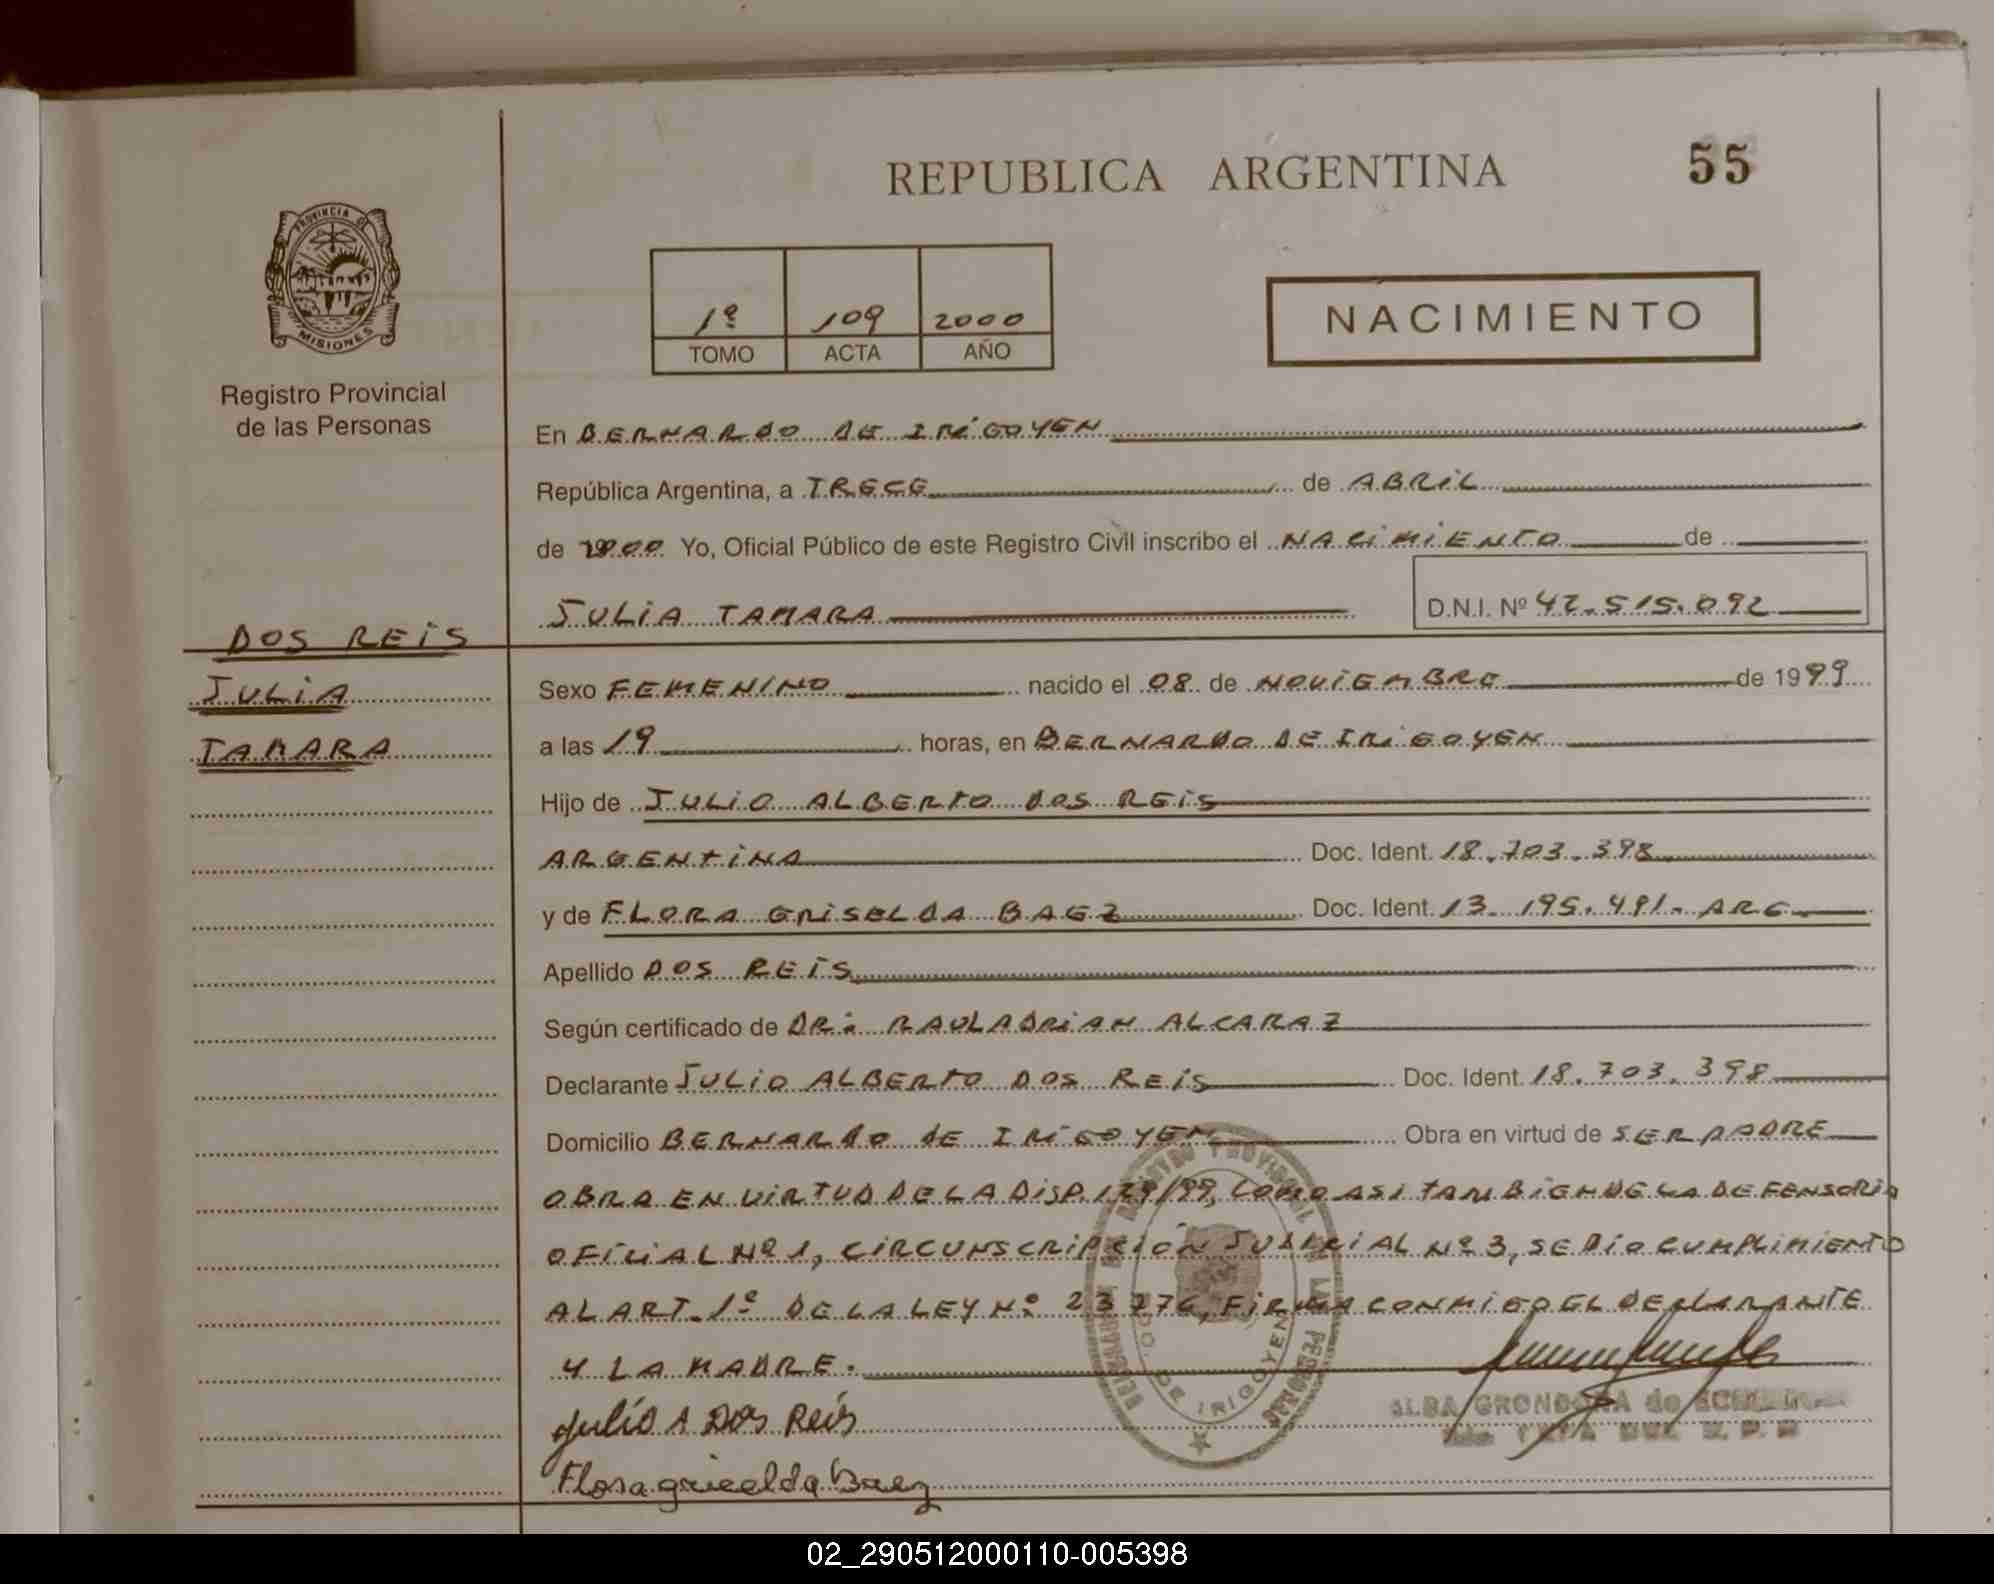 REPUBLICA ARGENTINA
55
PROVINCIA DE
MISIONES
Registro Provincial
de las Personas
1º 109 2000
TOMO ACTA AÑO
NACIMIENTO
En BERNARDO DE IRIGOYEN
República Argentina, a TRECE de ABRIL
de 2000 Yo, Oficial Público de este Registro Civil inscribo el NACIMIENTO de
JULIA TAMARA D.N.I. Nº 42.515.092
DOS REIS
JULIA
TAMARA
Sexo FEMENINO nacido el 08 de NOVIEMBRE de 1999
a las 19 horas, en BERNARDO DE IRIGOYEN
Hijo de JULIO ALBERTO DOS REIS
ARGENTINA Doc. Ident. 18.703.398
y de FLORA GRISELDA BAEZ Doc. Ident. 13.195.491. ARG.
Apellido DOS REIS
Según certificado de DR: RAUL ADRIAN ALCARAZ
Declarante JULIO ALBERTO DOS REIS Doc. Ident. 18.703.398
Domicilio BERNARDO DE IRIGOYEN Obra en virtud de SER PADRE
OBRA EN VIRTUD DE LA DISP. 179/99, COMO ASI TAMBIEN DE LA DEFENSORIA
OFICIAL Nº 1, CIRCUNSCRIPCIÓN JUDICIAL Nº 3, SE DIO CUMPLIMIENTO
AL ART. 1º DE LA LEY Nº 23776, FIRMA CONMIGO EL DECLARANTE
Y LA MADRE.
Julio A Dos Reis
Flora gricelda Baez
DE IRIGOYEN
ALBA GRONDONA de
02_290512000110-005398